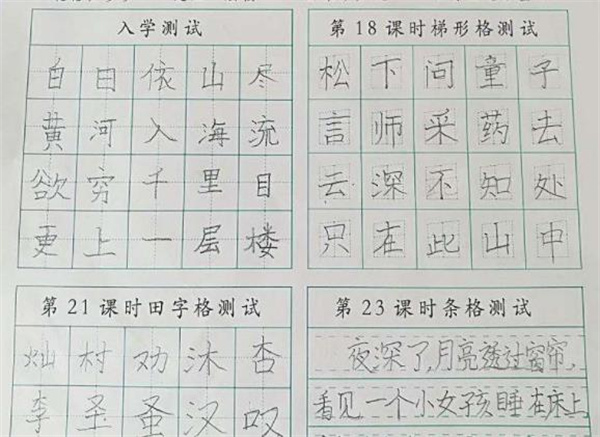 入学测试
白日依山尽
黄河入海流
欲穷千里目
更上一层楼
第18课时梯形格测试
松下问童子
言师采药去
云深不知处
只在此山中
第21课时田字格测试
灿村劝沐杏
李圣蚤汉叹
第23课时条格测试
夜深了,月亮透过窗帘,
看见一个小女孩睡在床上